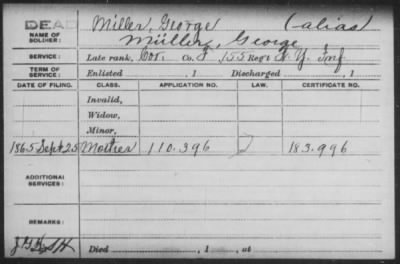 DEAD
NAME OF SOLDIER:
Miller, George (alias)
Müller, George
SERVICE:
Late rank, Cor. Co. F, 155 Reg't N.Y. Inf.
TERM OF SERVICE:
Enlisted , 1 Discharged , 1
DATE OF FILING. CLASS. APPLICATION NO. LAW. CERTIFICATE NO.
Invalid,
Widow,
Minor,
1865 Sept 25 Mother 110.396 183.996
ADDITIONAL SERVICES:
REMARKS:
Died , 1 , at